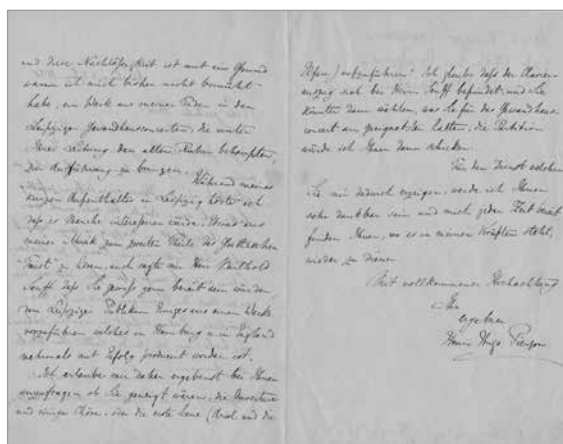 und diese Nachlässigkeit ist mit ein Grund
warum ich mich bisher nicht bemüht
habe, ein Werk aus meiner Feder in den
Leipziger Gewandhausconcerten, die unter
Ihrer Leitung den alten Ruhm behaupten,
zur Aufführung zu bringen.
Während meines
kurzen Aufenthaltes in Leipzig hörte ich
daß es Manche interessiren würde, Etwas aus
meiner Musik zum zweiten Theile des Goetheschen
"Faust" zu hören, auch sagte mir Herr Barthold
Senff daß Sie gewiß gern bereit sein würden
dem Leipziger Publikum Einiges aus einem Werke
vorzuführen welches in Hamburg u in England
mehrmals mit Erfolg producirt worden ist.
Ich erlaube mir daher ergebenst bei Ihnen
anzufragen ob Sie geneigt wären, die Ouverture
und einige Chöre, oder die erste Scene (Ariel und die
Elfen) aufzuführen? Ich glaube daß der Klavier-
auszug sich bei Herrn Senff befindet, und Sie
könnten dann wählen, was Sie für das Gewandhaus-
concert am geeignetsten halten; die Partitur
würde ich Ihnen dann schicken.
Für den Dienst welchen
Sie mir dadurch erzeigen, werde ich Ihnen
sehr dankbar sein und mich jeder Zeit bereit
finden, Ihnen, wo es in meinen Kräften steht,
wieder zu dienen.
Mit vollkommener Hochachtung
Ihr
ergebener
Henry Hugo Pierson